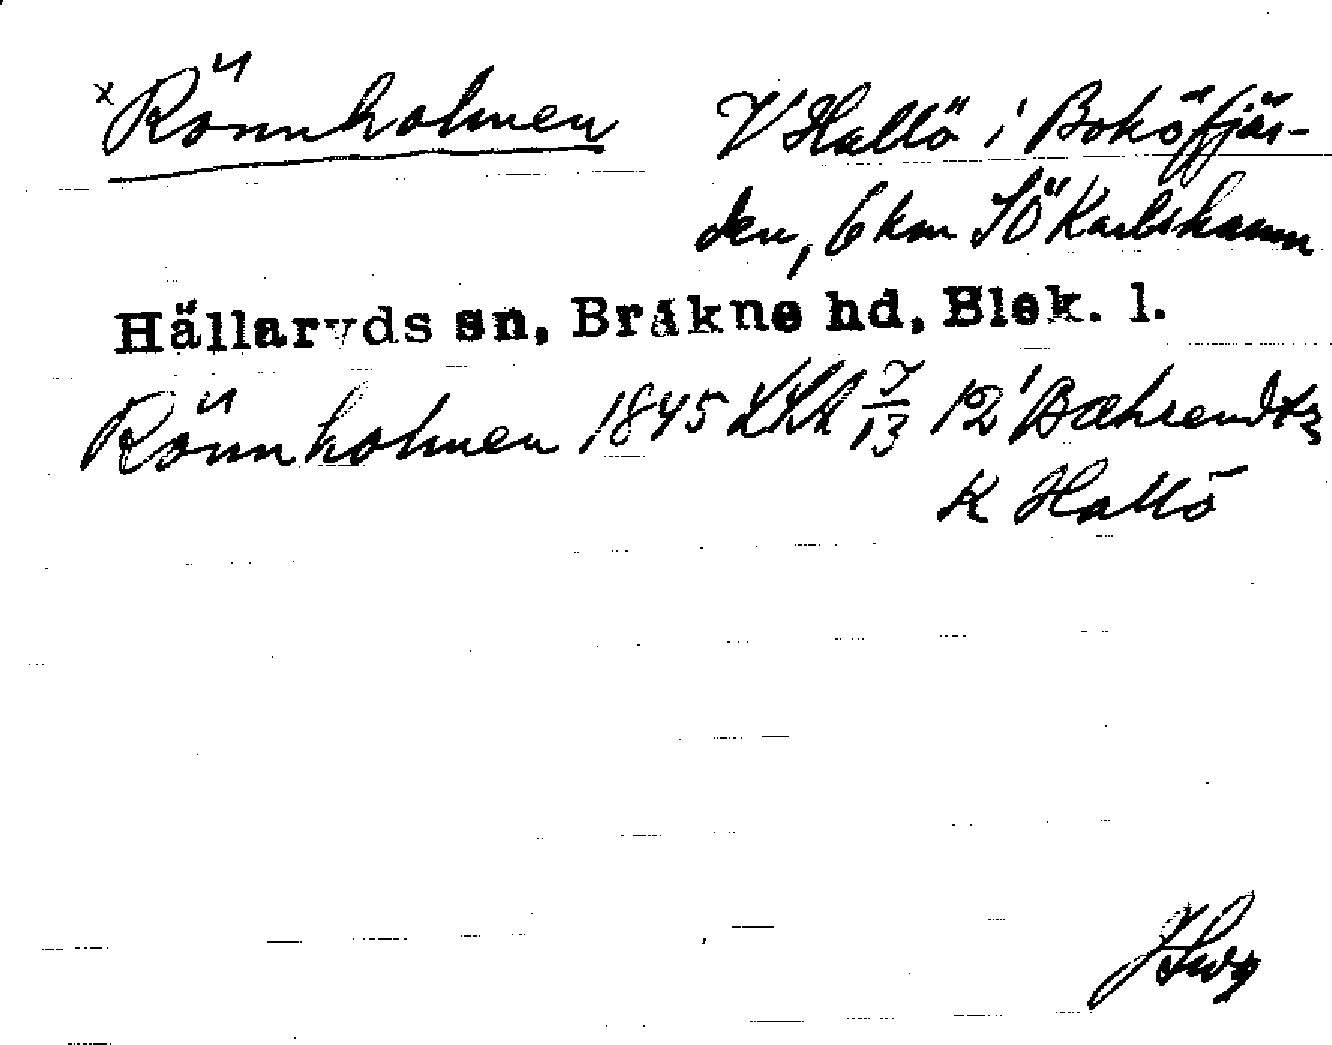 x Rönnholmen
V Hallö i Boköfjär-
den, 6 km SÖ Karlshamn
Hällaryds sn, Bräkne hd, Blek. l.
Rönnholmen 1845 LSA 7/13 12' Bæhrendtz
K Hallö